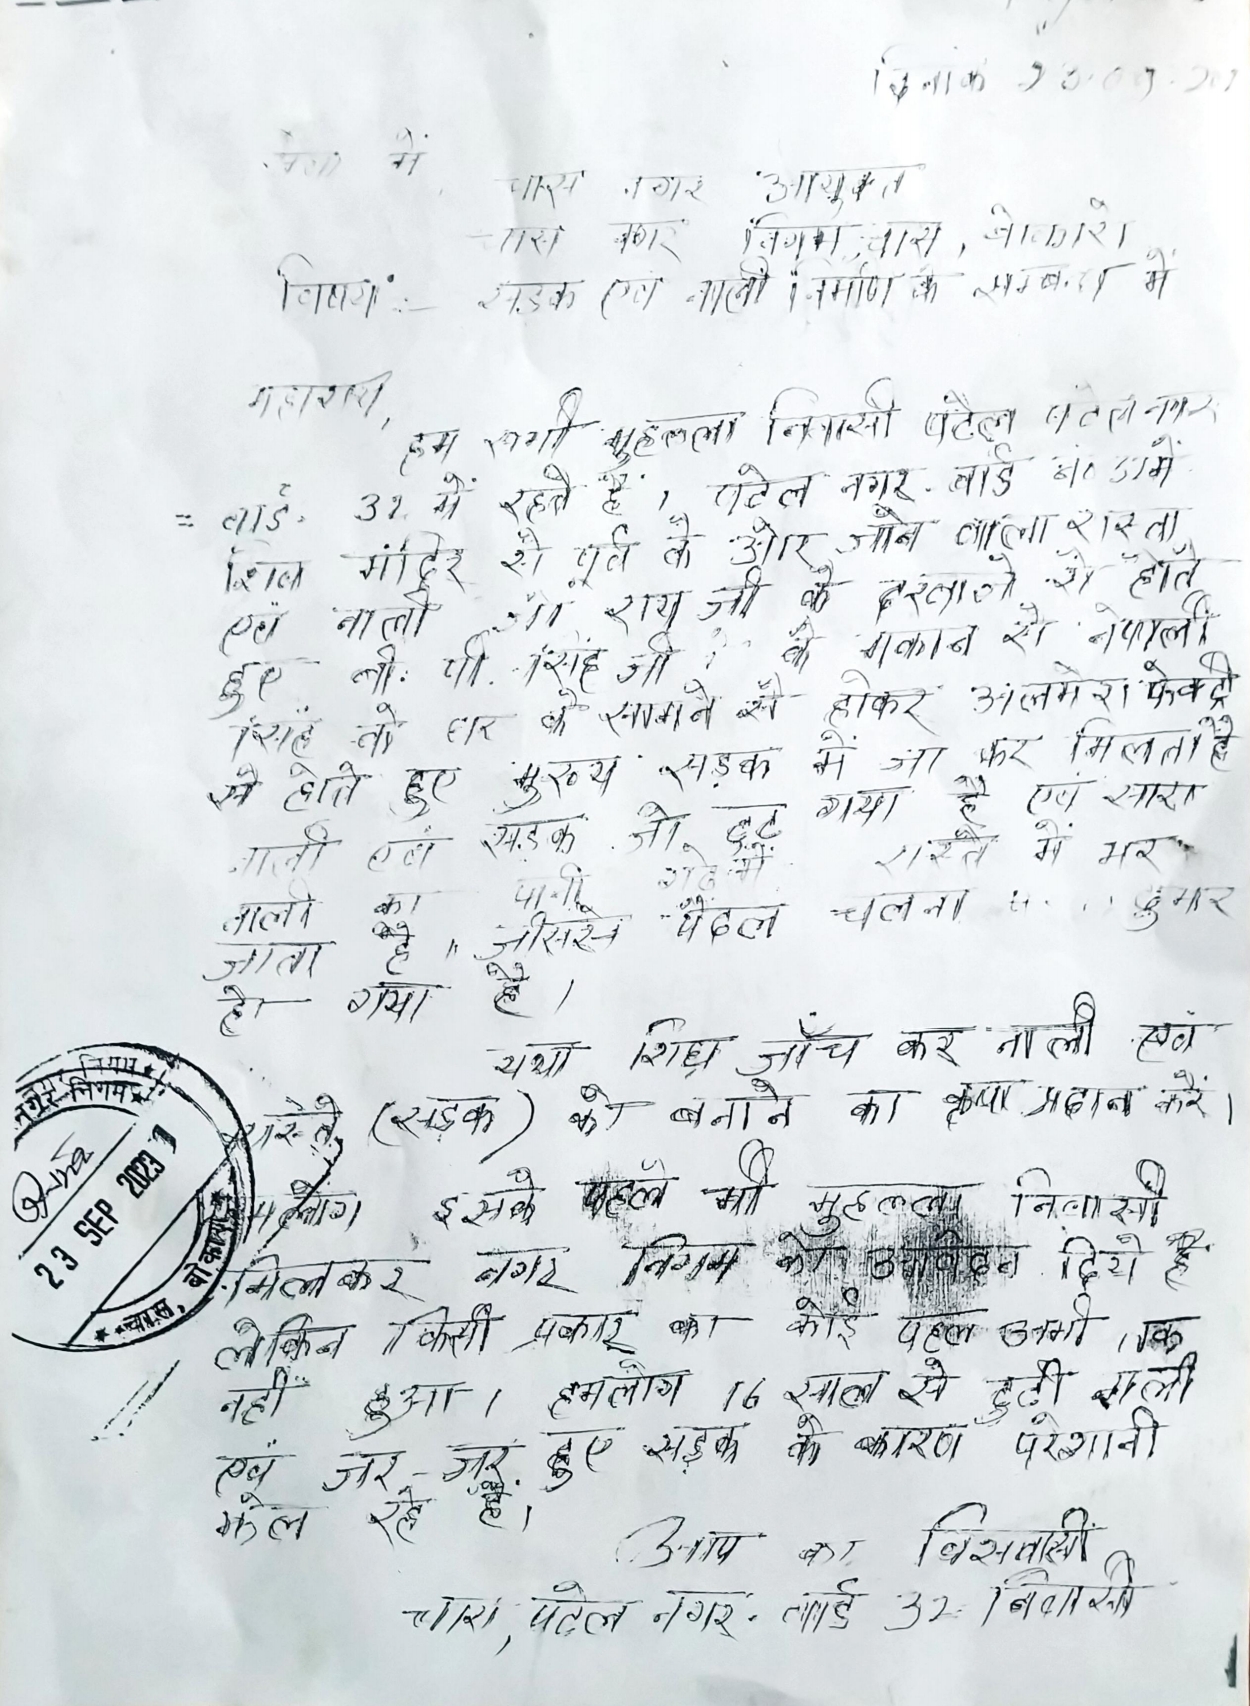 दिनांक 23.09.20
सेवा में
चास नगर आयुक्त
चास नगर निगम, चास, बोकारो।
विषय :- सड़क एवं नाली निर्माण के सम्बन्ध में
महाशय,
हम सभी मुहल्ला निवासी पटेल पटेल नगर
= वार्ड. 32 में रहते हैं। पटेल नगर. वार्ड में
शिव मंदिर से पूर्व के ओर जाने वाला रास्ता
एवं नाली जो राय जी के दरवाजे से होते
हुए बी. पी. सिंह जी के मकान से नेपाली
सिंह के घर के सामने से होकर अलमेरा फेक्ट्री
से होते हुए मुख्य सड़क में जा कर मिलता है
नाली एवं सड़क जो टूट गया है एवं सारा
नाली का पानी रास्ते में भर
जाता है। जीससे पैदल चलना दुभार
हो गया है।
यथा शिघ्र जाँच कर नाली एवं
रास्ते (सड़क) को बनाने का कृपा प्रदान करें।
इसके पहले भी मुहल्ला निवासी
मिलकर नगर निगम को आवेदन दिये हैं
लेकिन किसी प्रकार का कोई पहल अभी तक
नहीं हुआ। हमलोग 16 साल से टुटी नाली
एवं जर-जर हुए सड़क के कारण परेशानी
झेल रहे हैं।
आप का विसवासी
चास, पटेल नगर. वार्ड 32 निवासी
नगर निगम
23 SEP 2023
चास, बोकारो